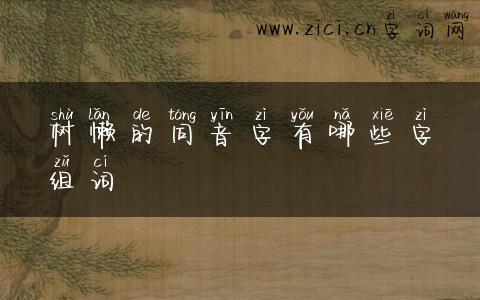 zì cí wǎng
www.zici.cn字词网
shù lǎn de tóng yīn zì yǒu nǎ xiē zì
树懒的同音字有哪些字
zǔ cí
组词